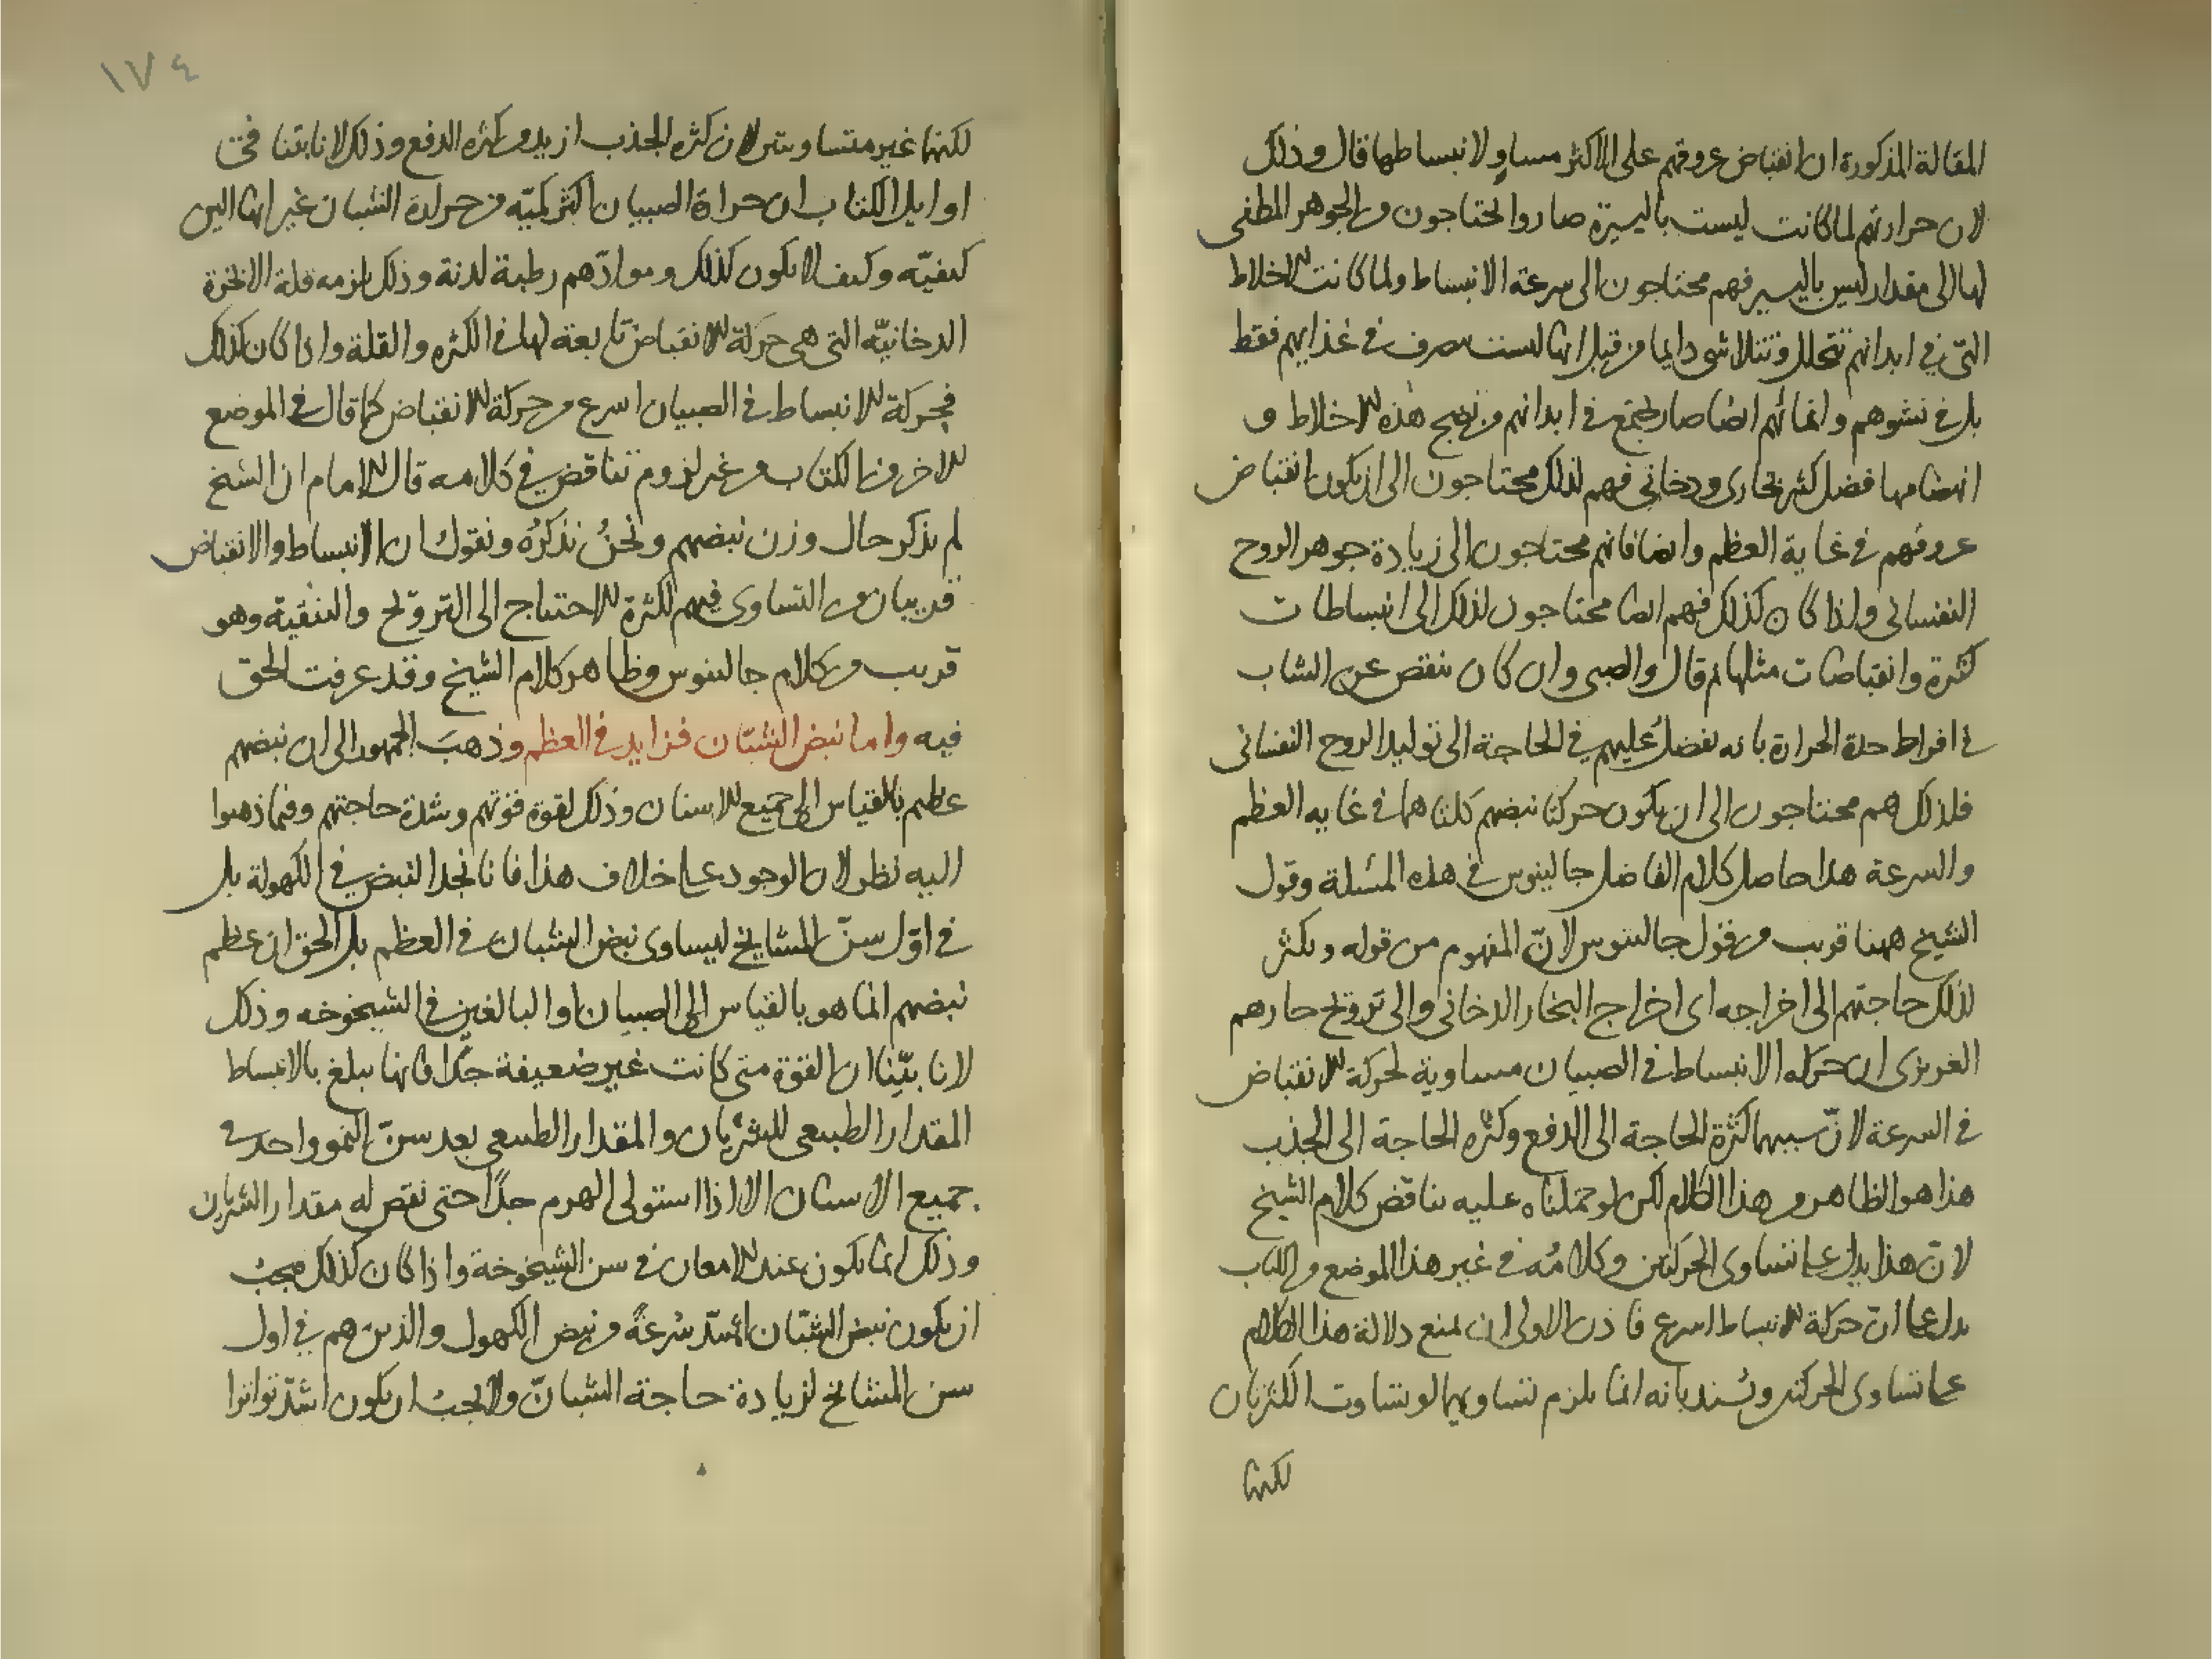 المقالة المذكورة ان انقباض عروقهم على الاكثر مساوٍ لانبساطها قال وذلك
لان حرارتهم لما كانت ليست باليسيرة صاروا يحتاجون من الجوهر المطفى
لها الى مقدار ليس باليسير فهم محتاجون الى سرعة الانبساط ولما كانت الاخلاط
التى فى ابدانهم تتحلل وتتلاشى دايما من قبل انها ليست تصرف فى غذايهم فقط
بل فى نشوهم وانمائهم ايضا صار يجتمع فى ابدانهم من نضج هذه الاخلاط و
انهضامها فضل كثير بخارى ودخانى فهم لذلك محتاجون الى ان يكون انقباض
عروقهم فى غاية العظم وايضا فانهم محتاجون الى زيادة جوهر الروح
النفسانى واذا كان كذلك فهم ايضا محتاجون لذلك الى انبساطات
كثيرة وانقباضات مثلها ثم قال والصبى وان كان ينقص عن الشاب
فى افراط حدة الحرارة بانه يفضل عليهم فى الحاجة الى توليد الروح النفسانى
فلذلك هم محتاجون الى ان يكون حركتا نبضهم كلتاهما فى غايه العظم
والسرعة هذا حاصل كلام الفاضل جالينوس فى هذه المسئلة وقول
الشيخ ههنا قريب من قول جالينوس لانّ المفهوم من قوله ويكثر
لذلك حاجتهم الى اخراجه اى اخراج البخار الدخانى والى ترويح حارهم
الغريزى ان حركه الانبساط فى الصبيان مساوية لحركة الانقباض
فى السرعة لانّ سببهما كثرة الحاجة الى الدفع وكثره الحاجة الى الجذب
هذا هو الظاهر من هذا الكلام لكن لو حملناه عليه يناقض كلام الشيخ
لانّ هذا يدل على تساوى الحركتين وكلامُه فى غير هذا الموضع من الكتاب
يدل على انّ حركة الانبساط اسرع فاذن الاولى ان نمنع دلالة هذا الكلام
على تساوى الحركتين ونسند بانه انما يلزم تساويهما لو تساوت الكثرتان
لكنها
١٧٤
لكنها غير متساويتين لان كثره الجذب ازيد من كثره الدفع وذلك لانا بينا فى
اوايل الكتاب ان حراة الصبيان اكثر كميّه من حرارة الشبان غير انها الين
كيفيّه وكيف لا يكون كذلك وموادّهم رطبة لدنة وذلك يلزمه قلة الابخرة
الدخانيّه التى هى حركة الانقباض تابعة لها فى الكثره والقلة واذا كان كذلك
فحركة الانبساط فى الصبيان اسرع من حركة الانقباض كما قال فى الموضع
الاخر من الكتاب من غير لزوم تناقض فى كلامه قال الامام ان الشيخ
لم يذكر حال وزن نبضهم ونحنُ نذكرُه ونقول ان الانبساط والانقباض
قريبان من التساوى فيهم لكثرة الاحتياج الى الترويح والتنقية وهو
قريب من كلام جالينوس وظاهر كلام الشيخ وقد عرفت الحق
فيه واما نبض الشبّان فزايد فى العظم وذهبَ الجمهور الى ان نبضهم
عظيم بالقياس الى جميع الاسنان وذلك لقوة قوّتهم وشدة حاجتهم وفيما ذهبوا
اليه نظر لان الوجود على خلاف هذا فانا نجد النبض فى الكهولة بل
فى اوّل سنّ المشايخ ليساوى نبض الشبان فى العظم بل الحق ان عظم
نبضهم انما هو بالقياس الى الصبيان او البالغين فى الشيخوخه وذلك
لانا بيّنا ان القوة متى كانت غير ضعيفة جدّا فانها تبلغ بالانبساط
المقدار الطبيعى للشريان والمقدار الطبيعى بعد سنّ النمو واحد فى
جميع الاسنان الا اذا استولى الهرم جدًا حتى نقص له مقدار الشريان
وذلك انما يكون عند الامعان فى سن الشيخوخة واذا كان كذلك فيجبُ
ان يكون نبض الشبّان اشدّ سُرعةً من نبض الكهول والذين هم فى اول
سن المشايخ لزيادة حاجة الشبانّ ولا يجب ان يكون اشدّ تواترا